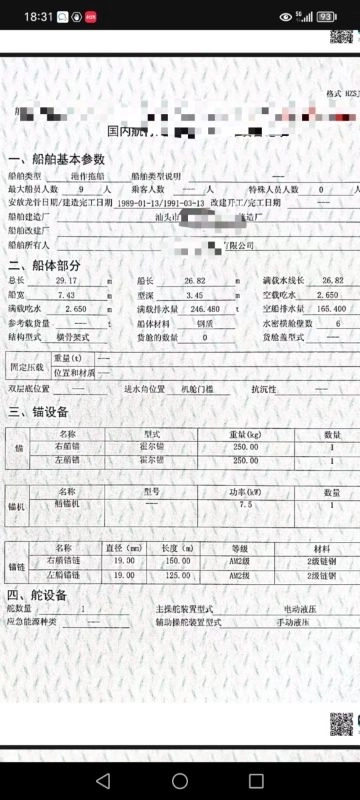 18:31 5G 93
格式 HZS
国内航行
一、船舶基本参数
船舶类型 港作拖船 船舶类型说明 ---
最大船员人数 9 人 乘客人数 --- 人 特殊人员人数 0 人
安放龙骨日期/建造完工日期 1989-01-13/1991-03-13 改建开工/完工日期 ---
船舶建造厂 汕头市 造厂
船舶改建厂
船舶所有人 有限公司
二、船体部分
总长 29.17 m 船长 26.82 m 满载水线长 26.82
船宽 7.43 m 型深 3.45 m 空载吃水 2.650
满载吃水 2.650 m 满载排水量 246.480 t 空船排水量 165.400
参考载货量 --- t 船体材料 钢质 水密横舱壁数 6
结构型式 横骨架式 货舱的数量 0 货舱盖型式 ---
固定压载 重量(t) ---
位置和材质 ---
双层底位置 --- 进水角位置 机舱门槛 抗沉性 ---
三、锚设备
锚 名称 型式 重量(kg) 数量
右艏锚 霍尔锚 250.00 1
左艏锚 霍尔锚 250.00 1
锚机 名称 型号 功率(kW) 数量
艏锚机 --- 7.5 1
锚链 名称 直径(mm) 长度(m) 等级 材料
右艏锚链 19.00 150.00 AM2级 2级链钢
左艏锚链 19.00 125.00 AM2级 2级链钢
四、舵设备
舵数量 1 主操舵装置型式 电动液压
应急能源种类 --- 辅助操舵装置型式 手动液压